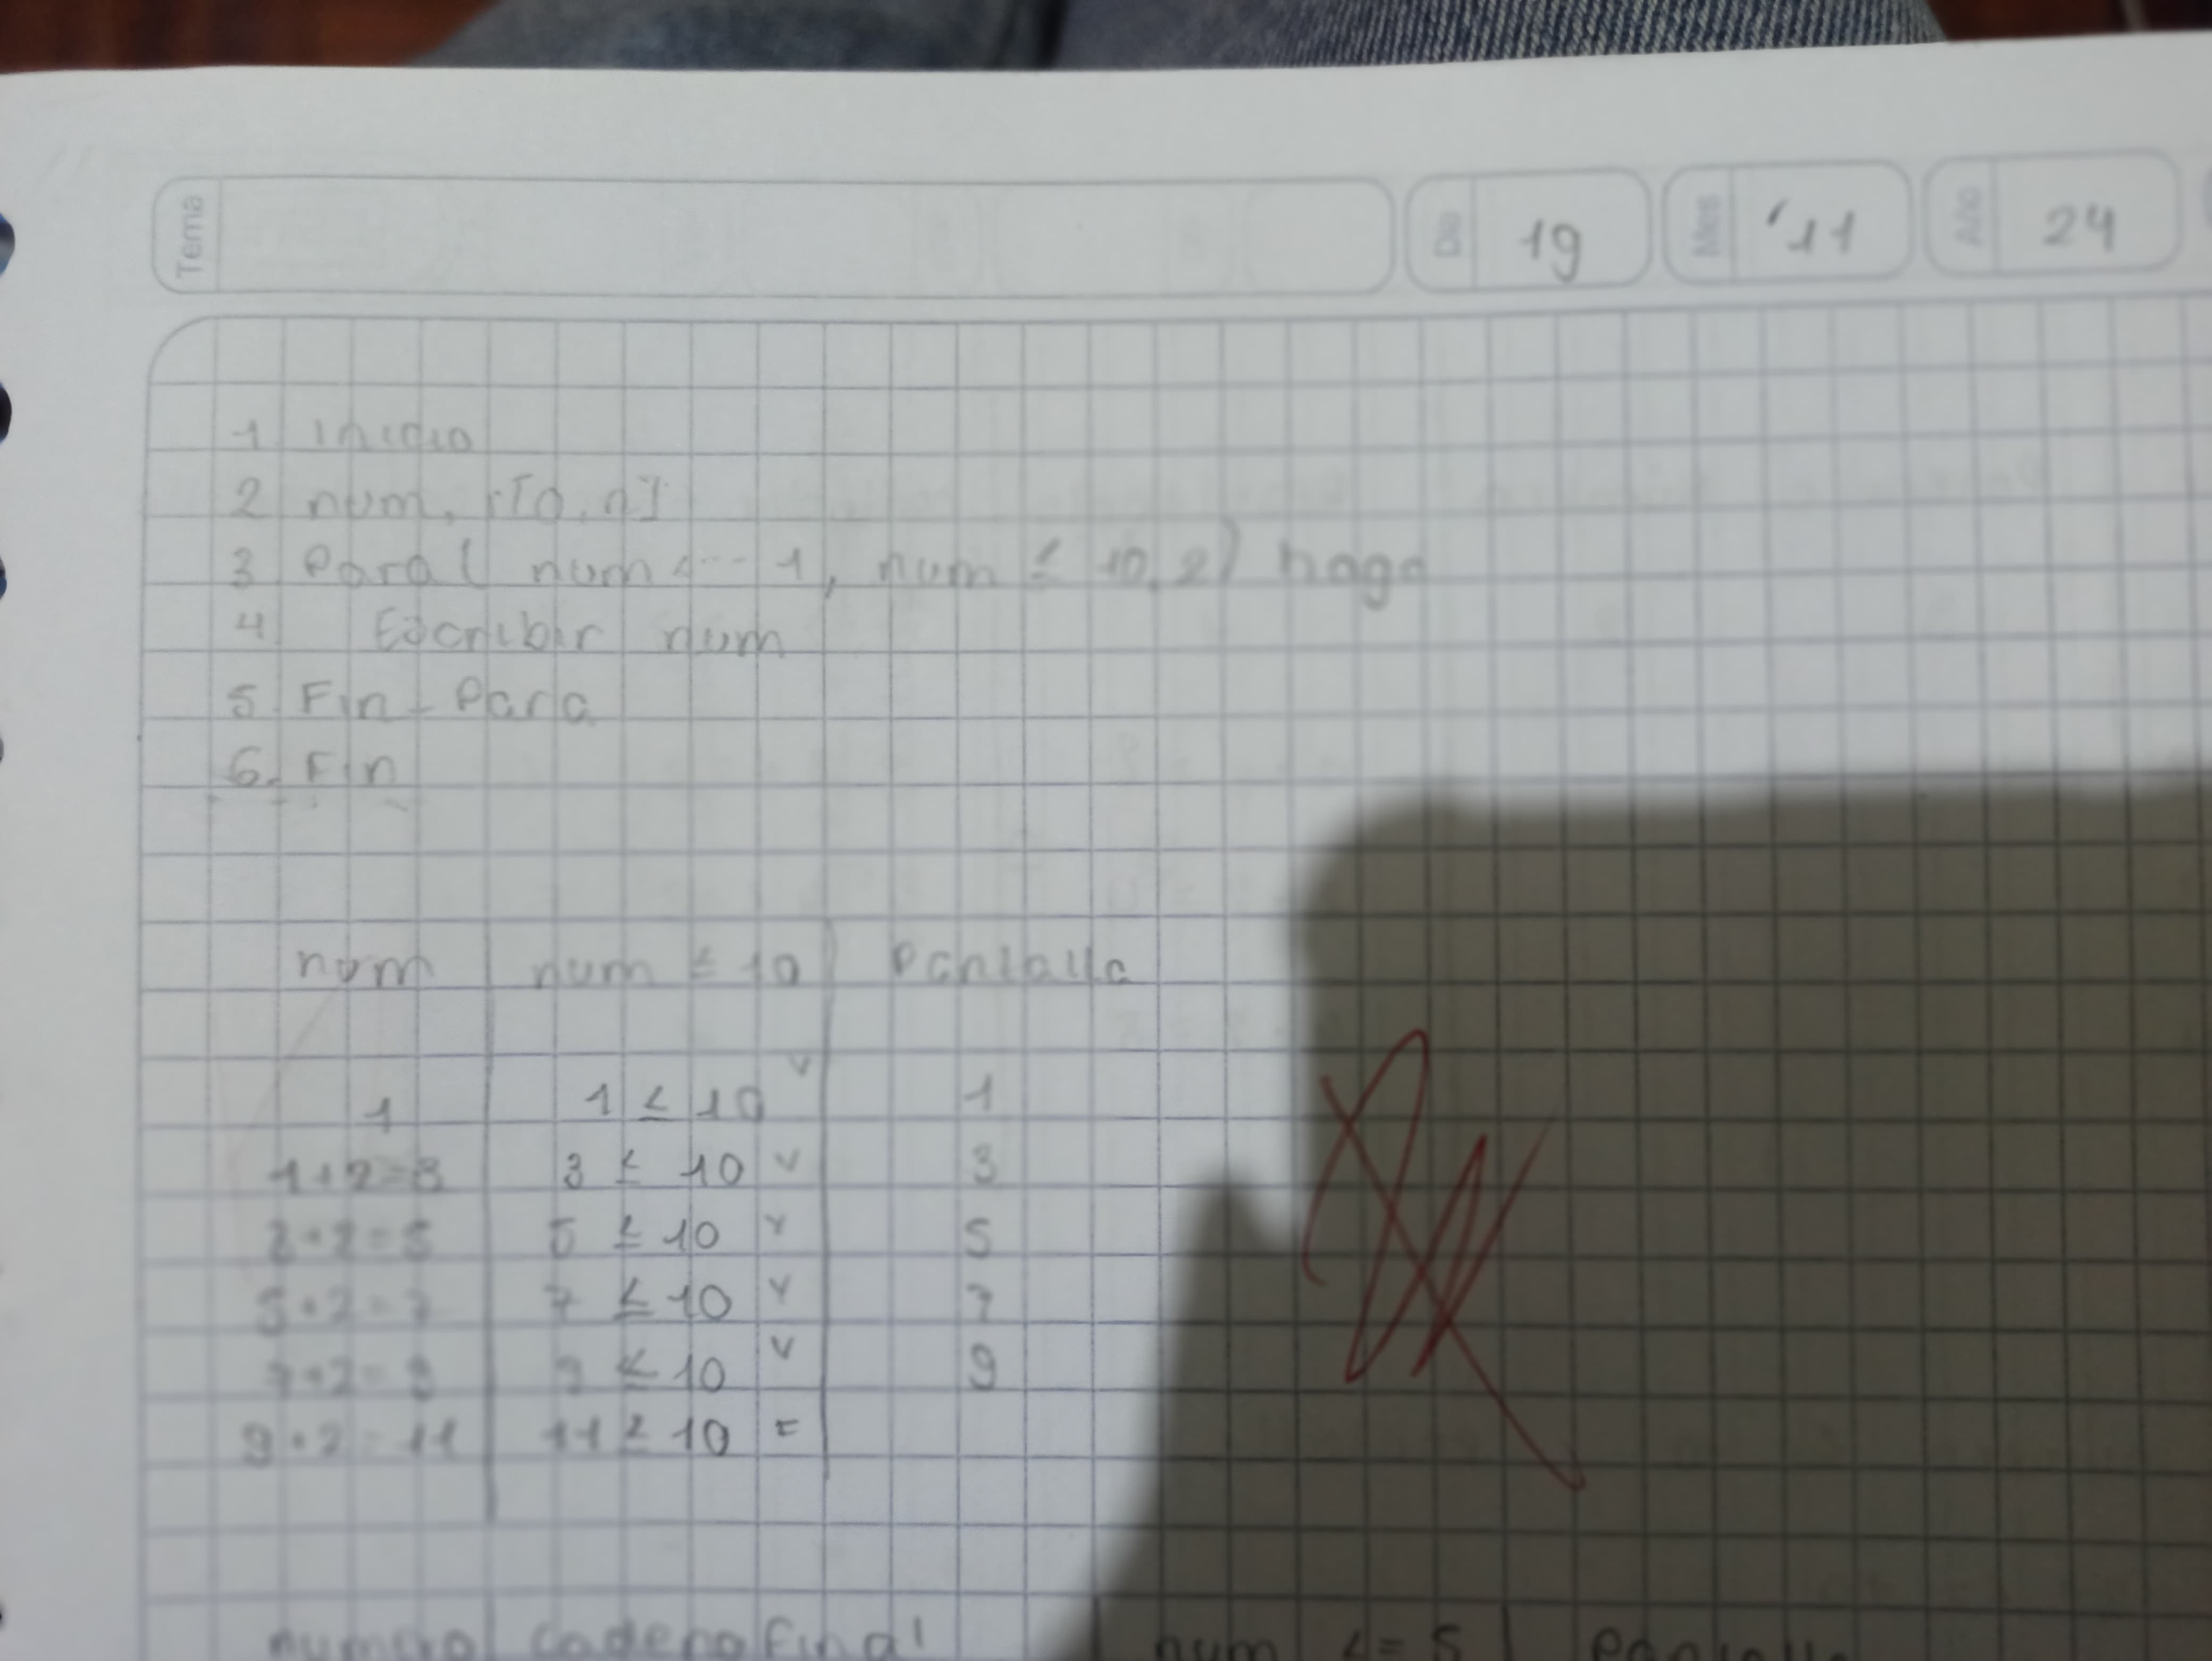 Tema Día 19 Mes 11 Año 24
1 Inicio
2 num.
3 Para( num <--- 1, num ≤ 10, 2) haga
4 Escribir num
5. Fin - Para
6. Fin
num num ≤ 10 Pantalla
1 1 ≤ 10 v 1
1+2=3 3 ≤ 10 v 3
3+2=5 5 ≤ 10 v 5
5+2=7 7 ≤ 10 v 7
7+2=9 9 ≤ 10 v 9
9+2=11 11 ≥ 10 F
numero cadena final num <= 5 Pantalla